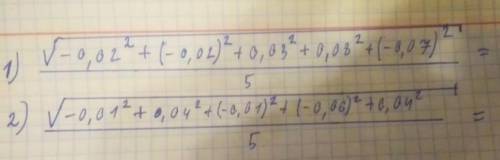 1) √-0,02² + (-0,02)² + 0,03² + 0,08² + (-0,07)² / 5 =
2) √-0,01² + 0,04² + (-0,01)² + (-0,06)² + 0,04² / 5 =